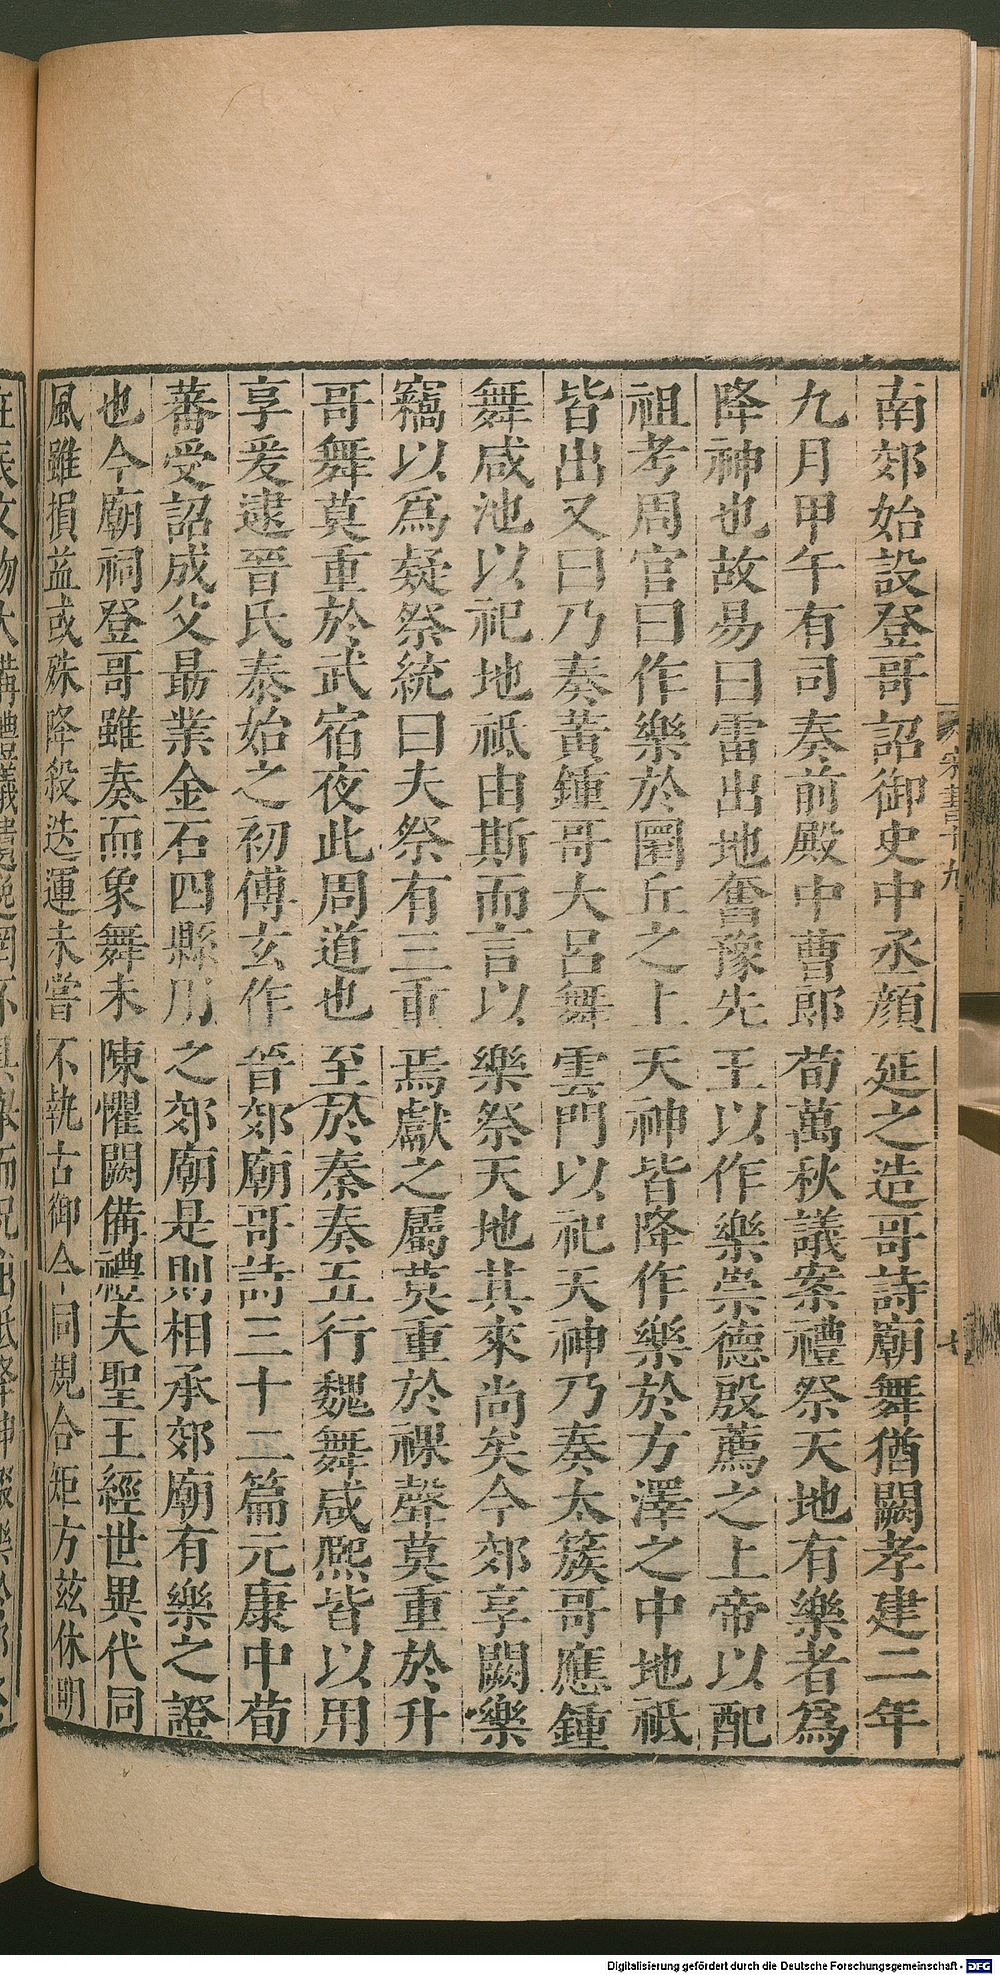 南郊始設登哥詔御史中丞顔延之造哥詩廟舞猶闕孝建二年
九月甲午有司奏前殿中曹郎荀萬秋議案禮祭天地有樂者爲
降神也故易曰雷出地奮豫先王以作樂崇德殷薦之上帝以配
祖考周官曰作樂於圜丘之上天神皆降作樂於方澤之中地祇
皆出又曰乃奏黃鍾哥大呂舞雲門以祀天神乃奏太簇哥應鍾
舞咸池以祀地祇由斯而言以樂祭天地其來尚矣今郊享闕樂
竊以爲疑祭統曰夫祭有三重焉獻之屬莫重於祼聲莫重於升
哥舞莫重於武宿夜此周道也至於秦奏五行魏舞咸熙皆以用
享爰逮晉氏泰始之初傅玄作晉郊廟哥詩三十二篇元康中荀
蕃受詔成父勗業金石四縣用之郊廟是則相承郊廟有樂之證
也今廟祠登哥雖奏而象舞未陳懼闕備禮夫聖王經世異代同
風雖損益或殊降殺迭運未嘗不執古御今同規合矩方茲休明
宋書十九
七
Digitalisierung gefördert durch die Deutsche Forschungsgemeinschaft - DFG